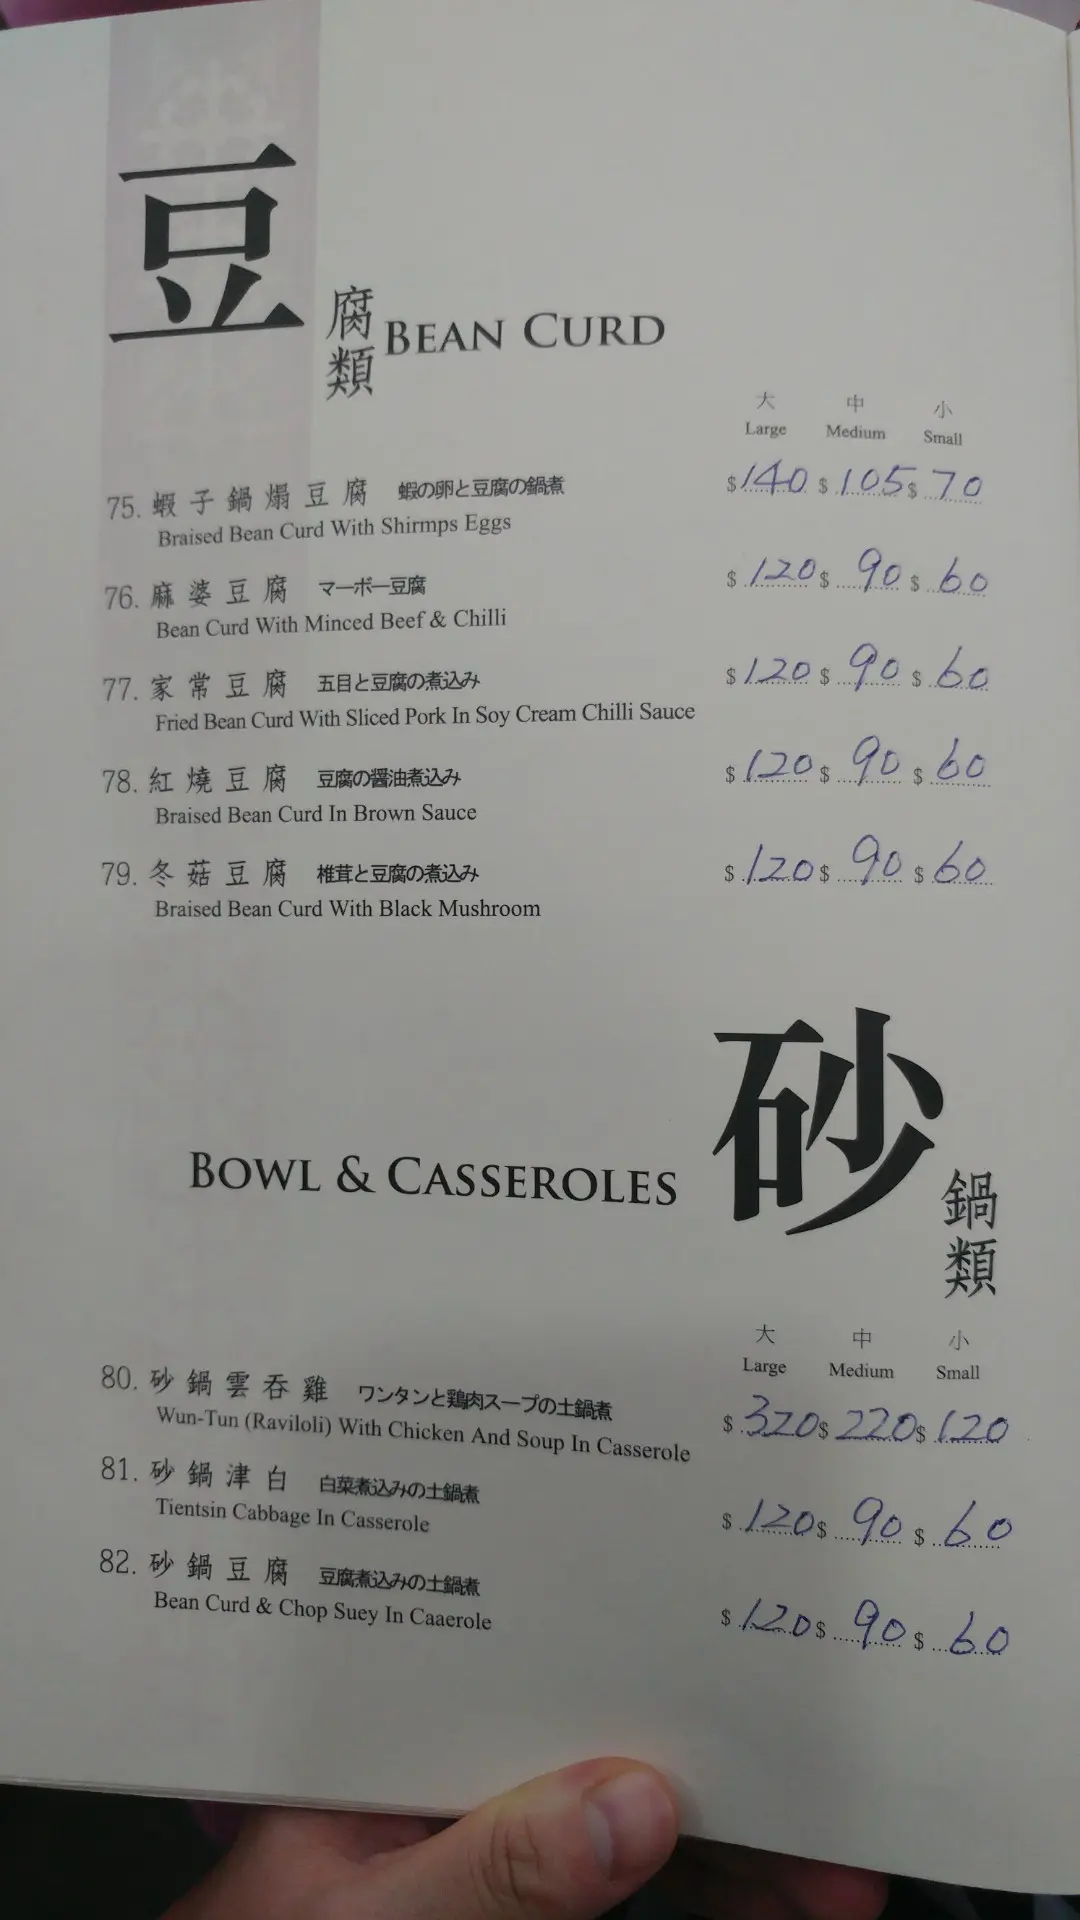 豆腐類 BEAN CURD
大 中 小
Large Medium Small
75. 蝦子鍋煽豆腐 蝦の卵と豆腐の鍋煮 $140 $105 $70
Braised Bean Curd With Shirmps Eggs
76. 麻婆豆腐 マーボー豆腐 $120 $90 $60
Bean Curd With Minced Beef & Chilli
77. 家常豆腐 五目と豆腐の煮込み $120 $90 $60
Fried Bean Curd With Sliced Pork In Soy Cream Chilli Sauce
78. 紅燒豆腐 豆腐の醤油煮込み $120 $90 $60
Braised Bean Curd In Brown Sauce
79. 冬菇豆腐 椎茸と豆腐の煮込み $120 $90 $60
Braised Bean Curd With Black Mushroom
BOWL & CASSEROLES 砂鍋類
大 中 小
Large Medium Small
80. 砂鍋雲吞雞 ワンタンと鶏肉スープの土鍋煮 $320 $220 $120
Wun-Tun (Raviloli) With Chicken And Soup In Casserole
81. 砂鍋津白 白菜煮込みの土鍋煮 $120 $90 $60
Tientsin Cabbage In Casserole
82. 砂鍋豆腐 豆腐煮込みの土鍋煮 $120 $90 $60
Bean Curd & Chop Suey In Caaerole